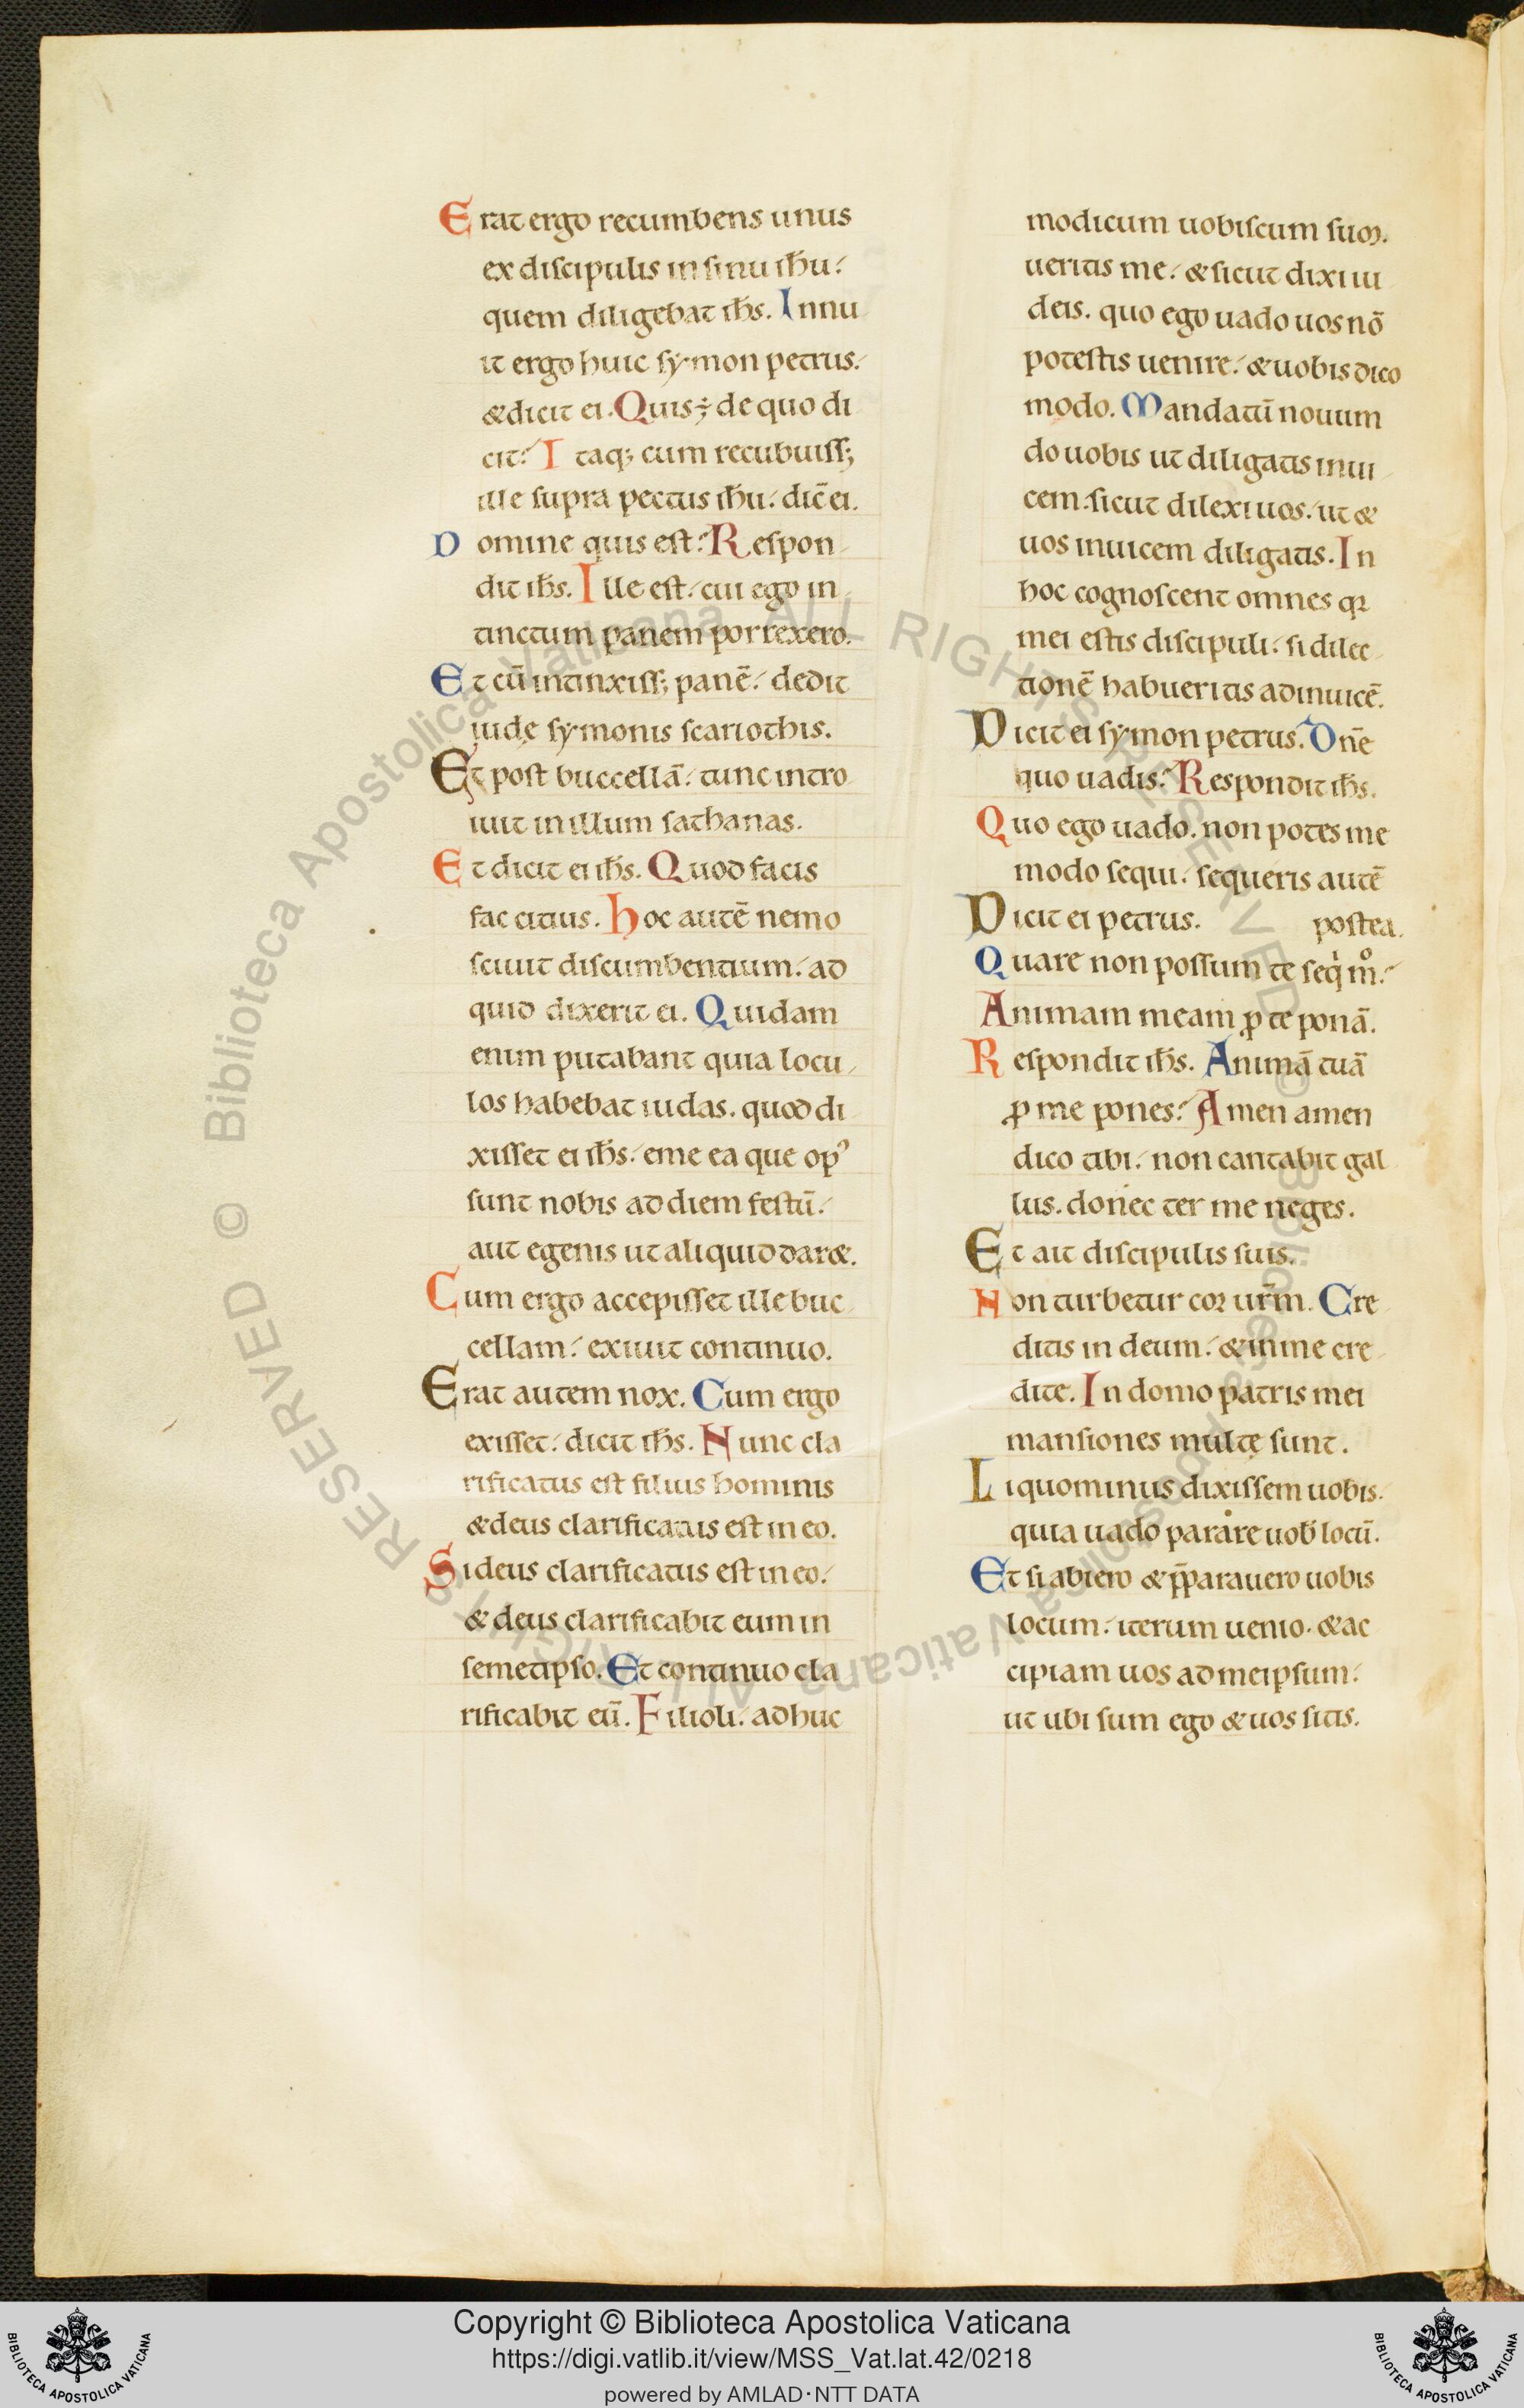 Erat ergo recumbens unus
ex discipulis in sinu ih̅u.
quem diligebat ih̅s. Innu
it ergo huic symon petrus.
& dicit ei. Quis ÷ de quo di
cit? Itaq; cum recubuiss;
ille supra pectus ih̅u. dic̅ ei.
Domine quis est? Respon
dit ih̅s. Ille est. cui ego in
tinctum panem porrexero.
Et cu̅ intinxiss; pane̅. dedit
iudę symonis scariothis.
Et post buccella̅. tunc intro
iuit in illum sathanas.
Et dicit ei ih̅s. Quod facis
fac citius. hoc aute̅ nemo
sciuit discumbentium. ad
quid dixerit ei. Quidam
enim putabant quia locu
los habebat iudas. quod di
xisset ei ih̅s. eme ea que opꝰ
sunt nobis ad diem festu̅.
aut egenis ut aliquid dar&.
Cum ergo accepisset ille buc
cellam. exiuit continuo.
Erat autem nox. Cum ergo
exisset. dicit ih̅s. Nunc cla
rificatus est filius hominis
& deus clarificatus est in eo.
Si deus clarificatus est in eo.
& deus clarificabit eum in
semetipso. Et continuo cla
rificabit eu̅. Filioli. adhuc
modicum uobiscum suꝫ.
ueritis me. & sicut dixi iu
deis. quo ego uado uos no̅
potestis uenire. & uobis dico
modo. Mandatu̅ nouum
do uobis ut diligatis inui
cem. sicut dilexi uos. ut &
uos inuicem diligatis. In
hoc cognoscent omnes qꝛ
mei estis discipuli. si dilec
tione̅ habueritis adinuice̅.
Dicit ei symon petrus. Dn̅e
quo uadis? Respondit ih̅s.
Quo ego uado. non potes me
modo sequi. sequeris aute̅
Dicit ei petrus. postea.
Quare non possum te seqͥ mͦ.
Animam meam ꝓ te pona̅.
Respondit ih̅s. Anima̅ tua̅
ꝓ me pones? Amen amen
dico tibi. non cantabit gal
lus. donec ter me neges.
Et ait discipulis suis.
Non turbetur cor ur̅m. Cre
ditis in deum. & in me cre
dite. In domo patris mei
mansiones multę sunt.
Liquominus dixissem uobis.
quia uado parare uob̅ locu̅.
Et si abiero & p̅parauero uobis
locum. iterum uenio. & ac
cipiam uos ad meipsum.
ut ubi sum ego & uos sitis.
© Biblioteca Apostolica Vaticana ALL RIGHTS RESERVED © Biblioteca Apostolica Vaticana ALL RIGHTS RESERVED
Copyright © Biblioteca Apostolica Vaticana
https://digi.vatlib.it/view/MSS_Vat.lat.42/0218
powered by AMLAD·NTT DATA
BIBLIOTECA APOSTOLICA VATICANA
BIBLIOTECA APOSTOLICA VATICANA